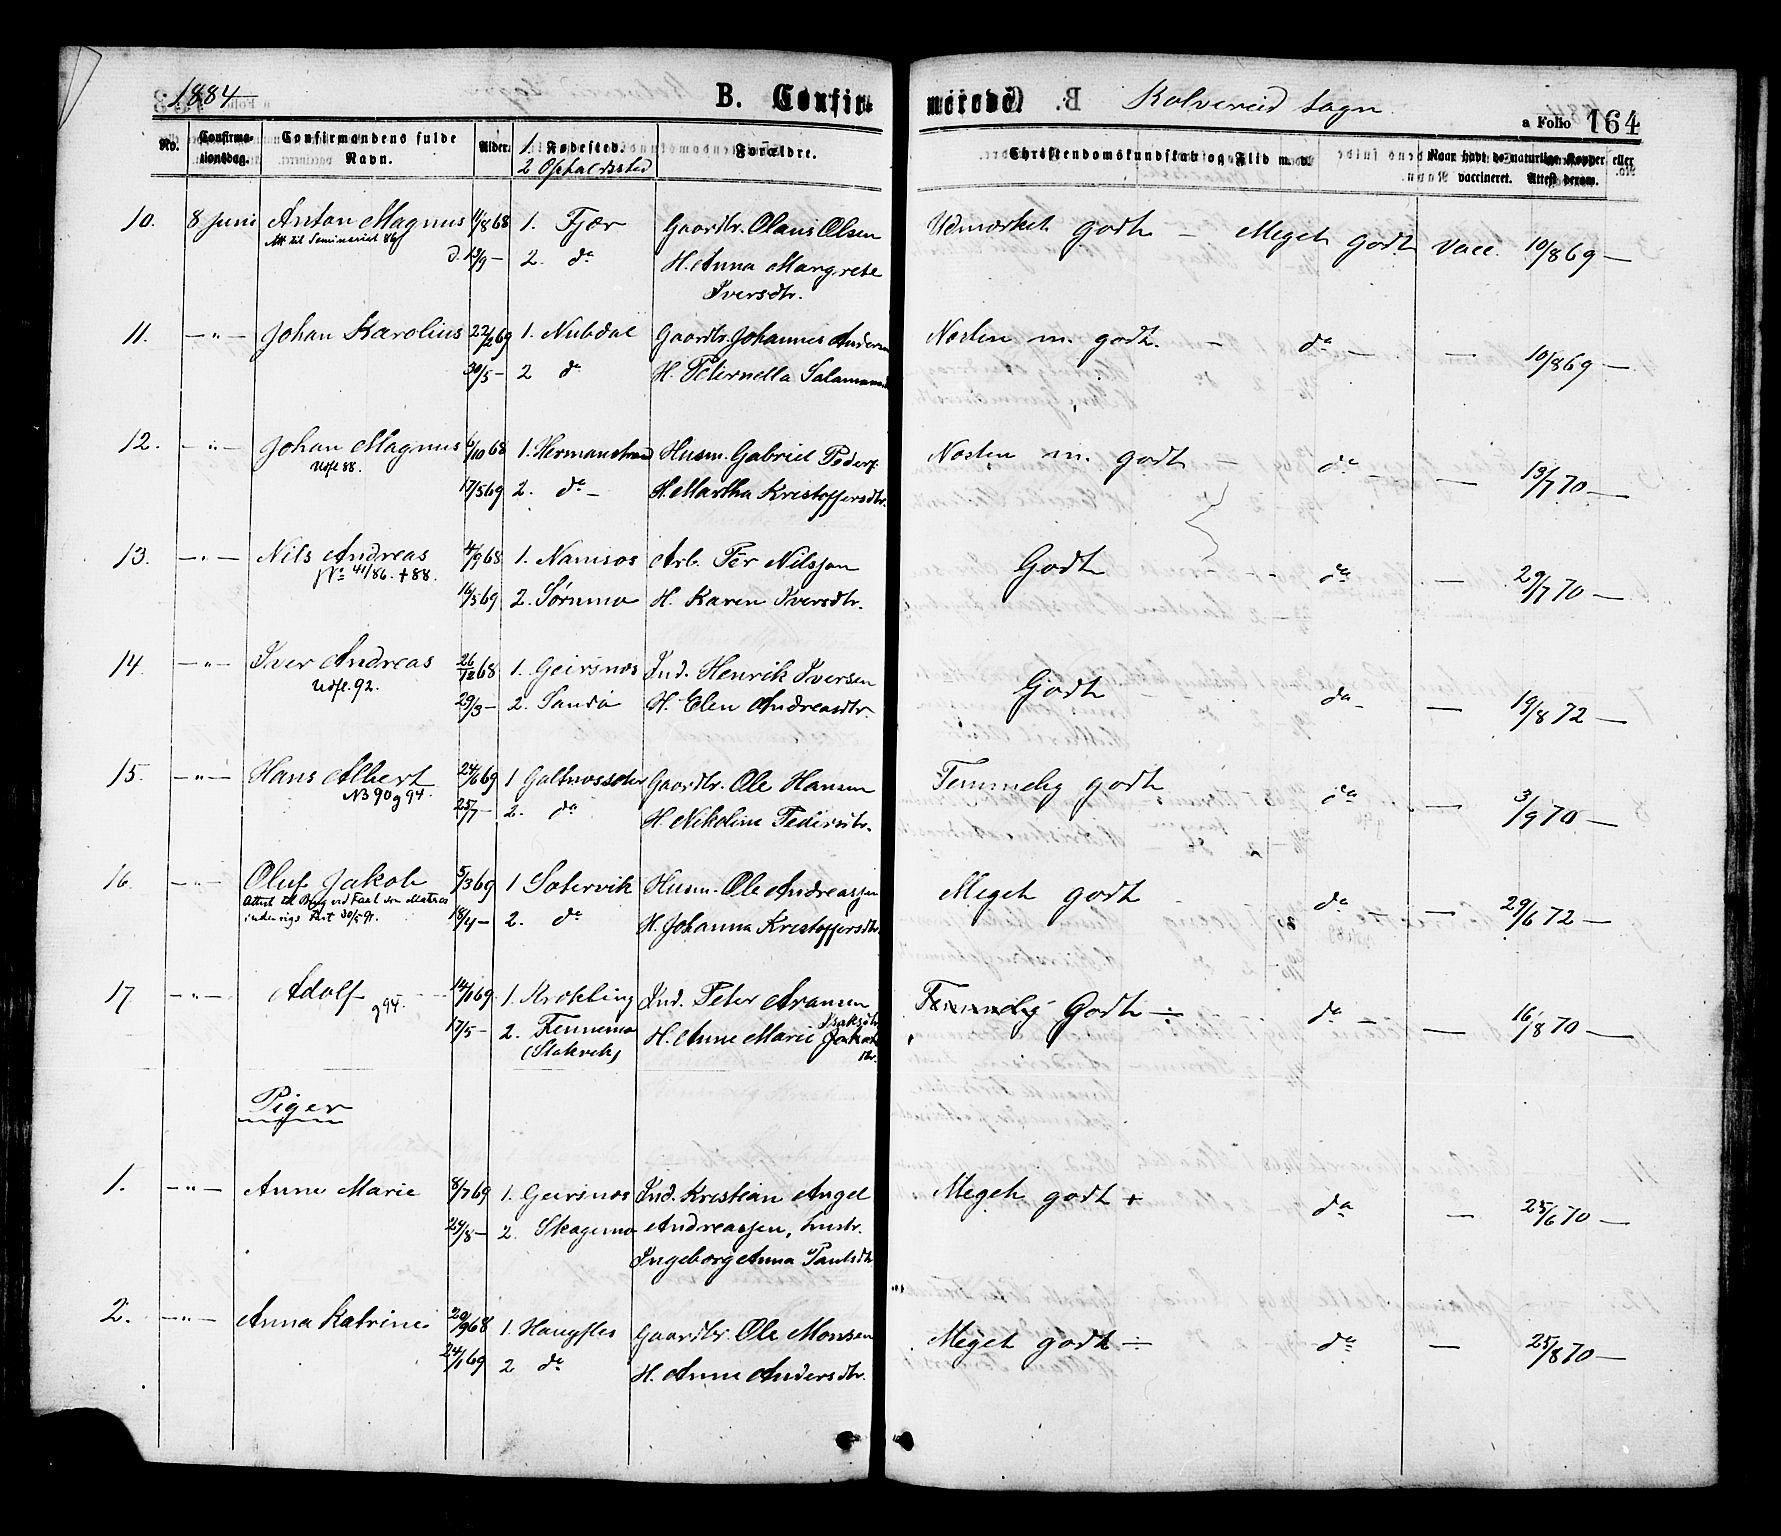 1884 B. Confir- merede. Kolvereid Sogn. a Folio 164
No. Confirma-tionsdag. Confirmandens fulde Navn. Alder. 1. Fødested. 2 Opholdssted Forældre. Christendomskundskab og Flid m. v. Naar havt de naturlige Kopper eller vaccineret. Attest derom.
10. 8 Juni Anton Magnus 11/8 68 1. Fjær Gaardbr. Olaus Olsen Udmærket godt — Meget godt vacc. 10/8 69 —
Att til Seminariet 86 d. 13/9 — 2. do H. Anna Margrete
Iversdtr.
11. — " — Johan Karolius 22/2 69 1. Nubdal Gaardbr. Johannes Anders Næsten m. godt. — do — — 10/8 69 —
30/5 — 2 do H. Peternella
12. — " — Johan Magnus 6/10 68 1. Hermanstrand Husm. Gabriel Peders. Næsten m. godt — do — — 13/7 70 —
Udfl 88.
17/5 69 2. do — H. Martha Kristoffersdtr.
13. — " — Nils Andreas 4/9 68 1. Namsos Arb. Per Nilssen Godt - - do — 29/7 70 —
No 41/86. + 88.
16/5 69 2. Sørnmo H. Karen Iversdtr.
14. — " — Iver Andreas 26/12 68 1. Geirsnøs Ind. Henrik Iversen Godt - do — 19/8 72 —
Udfl. 92.
29/3 — 2. Sandø H. Elen Andreasdtr.
15. — " — Hans Albert 24/6 69 1 Galtnæssæter Gaardbr. Ole Hansen Temmelig godt do — 3/9 70 —
NB 90 g 94.
25/7 — 2. do H. Nikoline Pedersdtr.
16. — " — Oluf Jakob 5/3 69 1 Sætervik Husm. Ole Andreassen Meget godt - do — 29/6 72 —
18/4 — 2. do H. Johanna Kristoffersdtr.
indenrigs Fart 30/5 91.
17 — " — Adolf 14/1 69 1. Krokling Ind. Peter Aransen Temmelig Godt ÷ do — — 16/8 70 —
g 94.
17/5 — 2. Finnemo H. Anne Marie Isaksdtr
(Slakvik)
Piger
1. — " — Anne Marie 8/7 69 1. Geirsnøs Ind. Kristian Angel Meget godt + do — 25/6 70 —
24/8 — 2. Skagemo Andreassen, Hustr.
Ingeborg Anna Paulsdtr
2. — " — Anna Katrine 20/9 68 1. Haugfles Gaardbr. Ole Monsen Meget godt ÷ do — 25/8 70 —
24/1 69 2 do H. Anne Andersdtr.